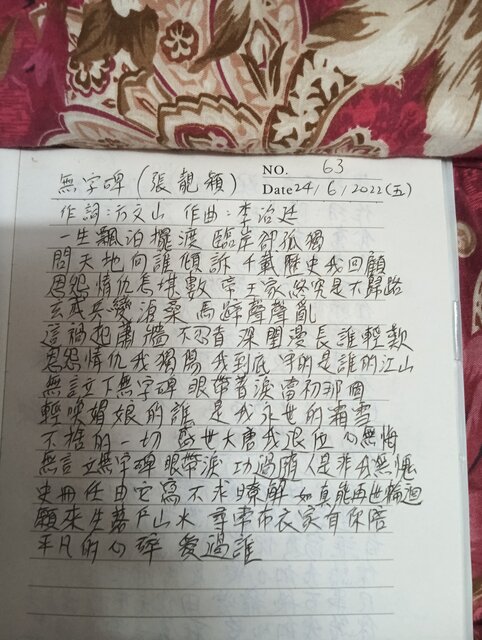 NO. 63
無字碑（張靚穎）
Date 24/6/2022(五)
作詞:方文山 作曲:李治廷
一生飄泊擺渡 臨岸卻孤獨
問天地向誰傾訴 千載歷史我回顧
恩怨情仇怎堪數 帝王家終究是不歸路
玄武兵變滄桑 馬蹄聲聲亂
這禍起蕭牆 不忍看 深閨漫長誰輕歎
恩怨情仇我獨傷 我到底 的是誰的江山
無言立下無字碑 眼帶著淚 當初那個
輕喚媚娘的誰 是我永世的霜雪
不捨的一切 盛世大唐我退位 心無悔
無言立無字碑 眼帶淚 功過隨人是非我無愧
史冊任由它寫 不求瞭解 如真能再世輪迴
願來生 山水 布衣家有你陪
平凡的心碎 愛過誰